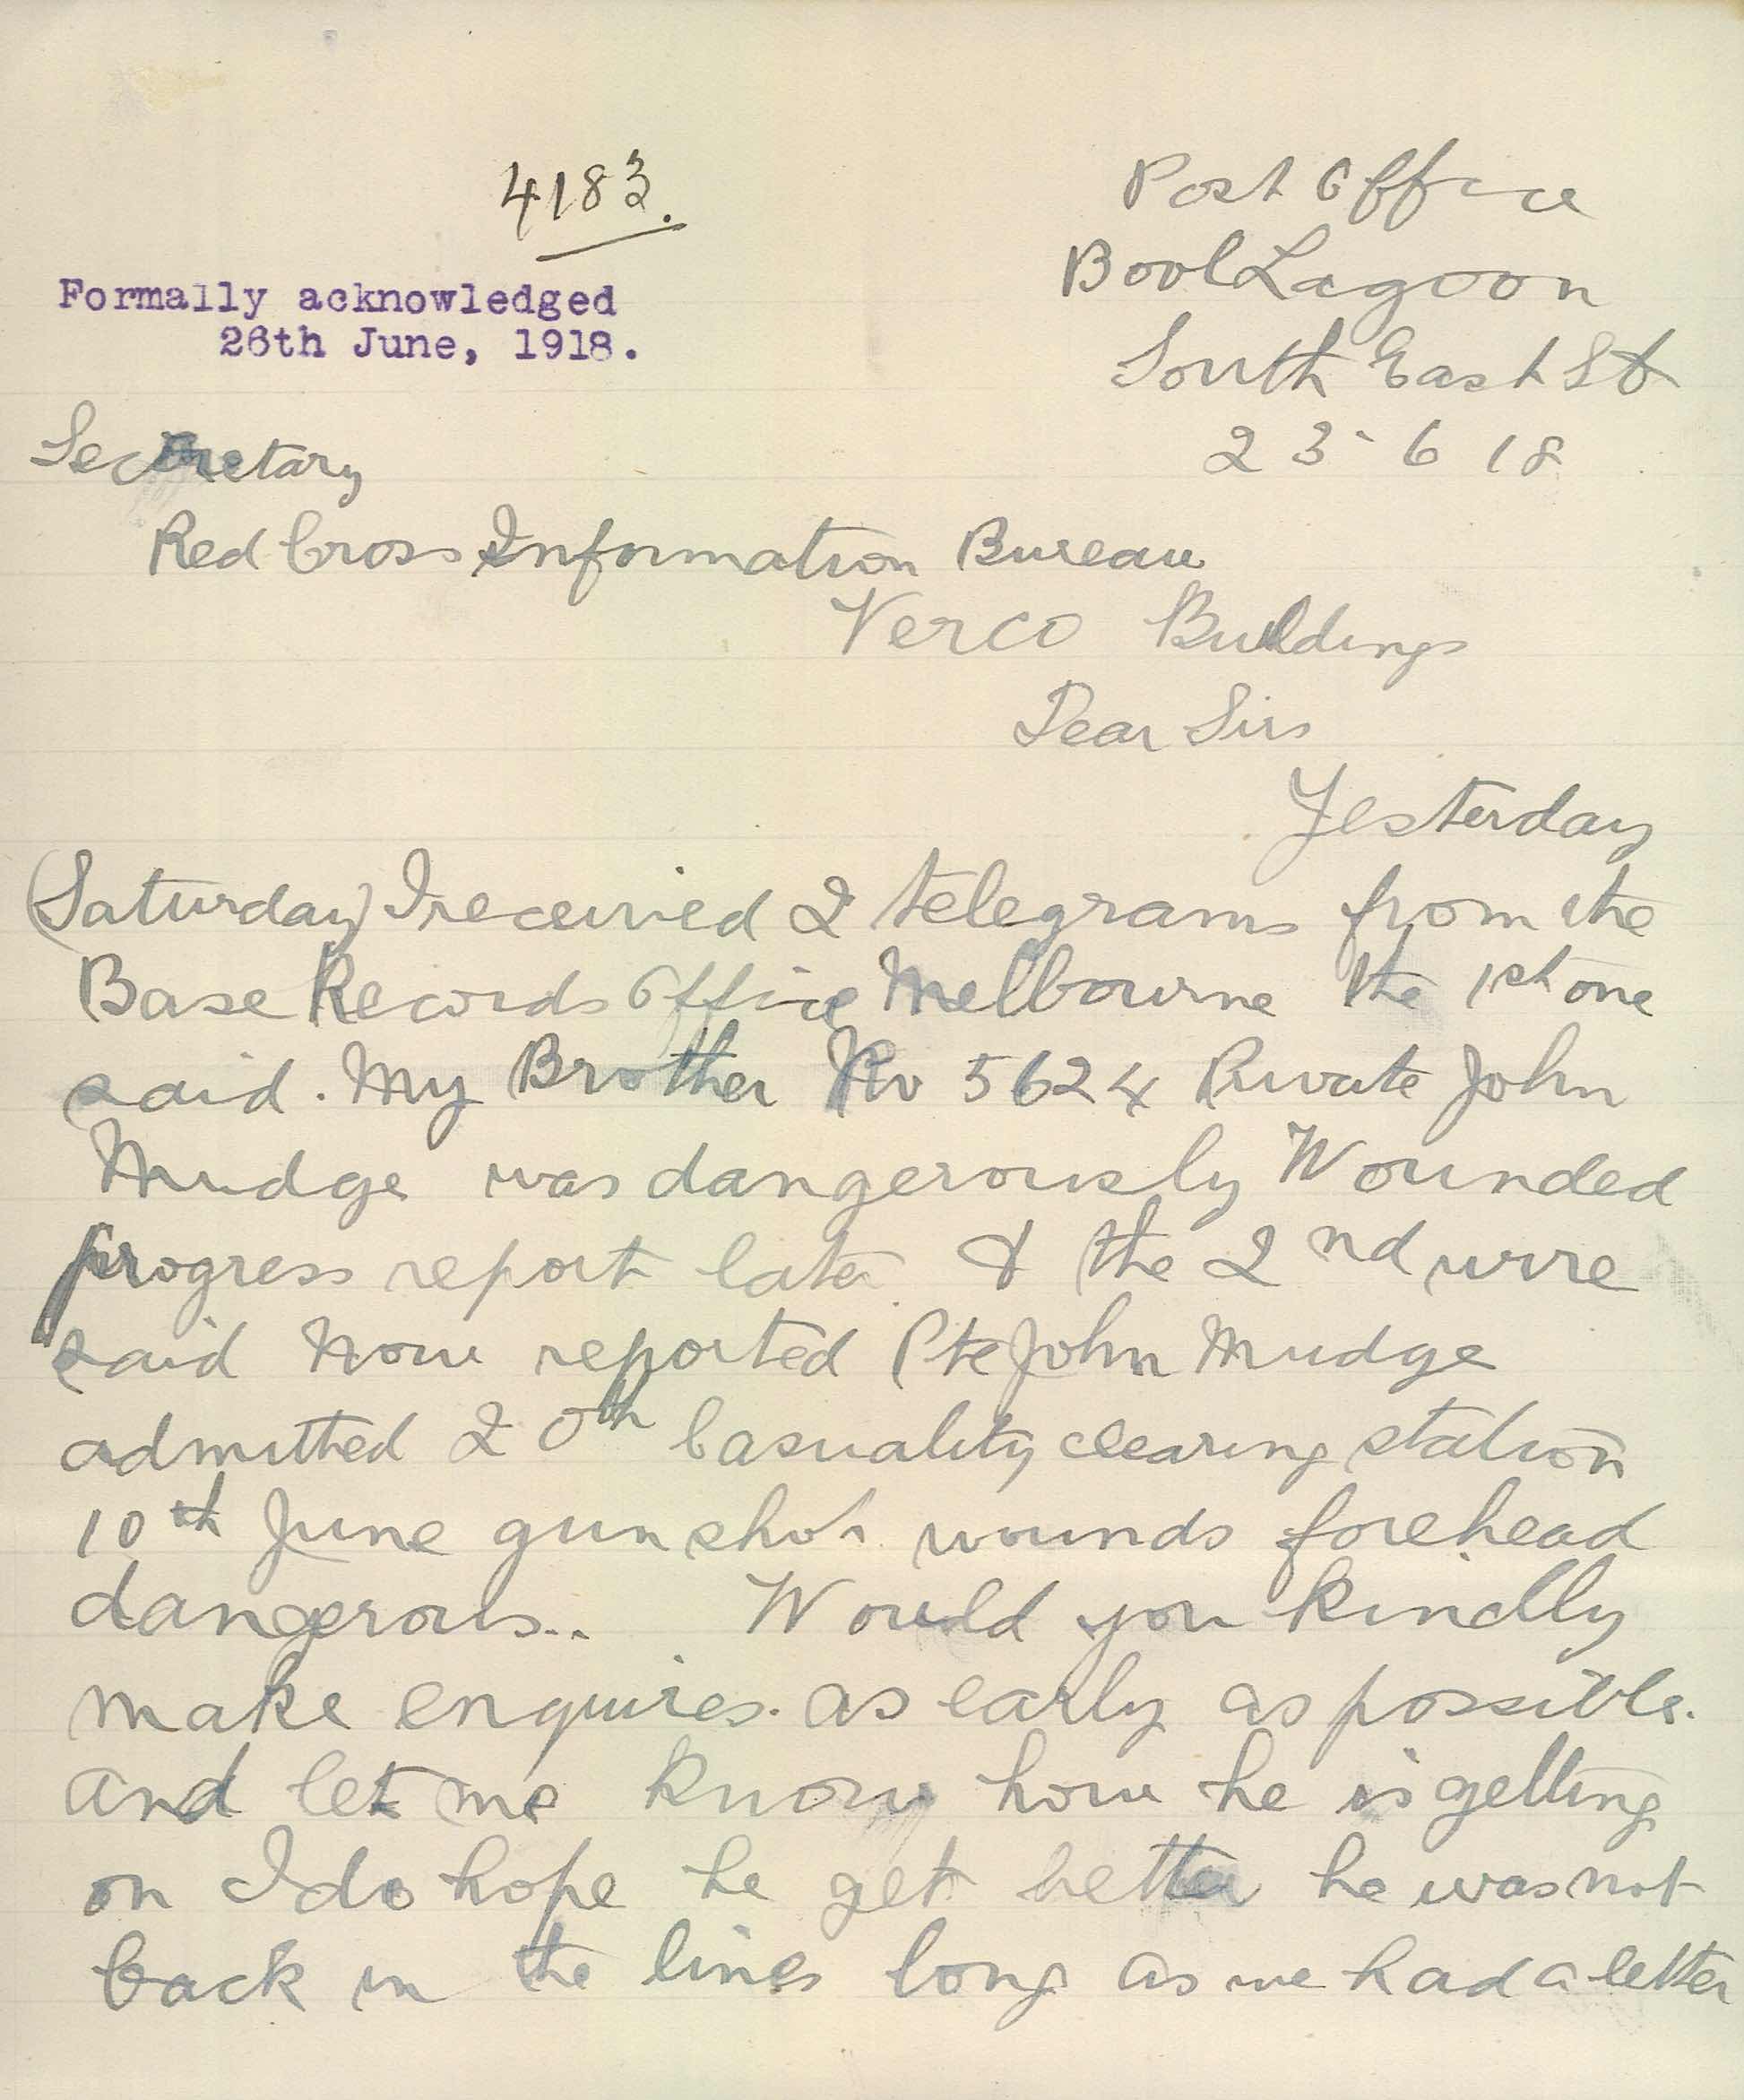 4183.
Post Office
Bool Lagoon
Formally acknowledged
26th June, 1918.
South East St
23-6 18
Secretary
Red Cross Information Bureau
Verco Buildings
Dear Sirs
Yesterday
(Saturday) I received 2 telegrams from the
Base Records Office Melbourne the 1st one
said. My Brother No 5624 Private John
Mudge was dangerously Wounded
progress report later & the 2nd wire
said Now reported Pte John Mudge
admitted 20th Casuality clearing station
10th June gun shot wounds forehead
dangerous.. Would you kindly
make enquires. as early as possible.
and let me know how he is getting
on I do hope he get better he was not
back in the lines long as we had a letter